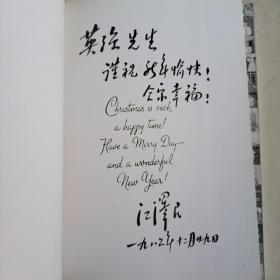 英强先生
谨祝新年愉快!
全家幸福!
Christmas is such
a happy time!
Have a Merry Day—
and a wonderful
New Year!
江泽民
一九八三年十二月廿九日